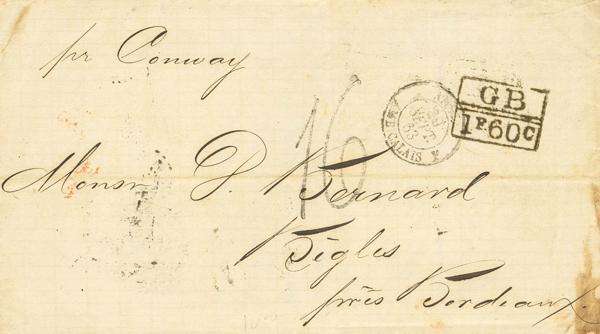 pr Conway
GB
1F60C
CALAIS
16
Monsr P. Bernard
Bègles
près Bordeaux